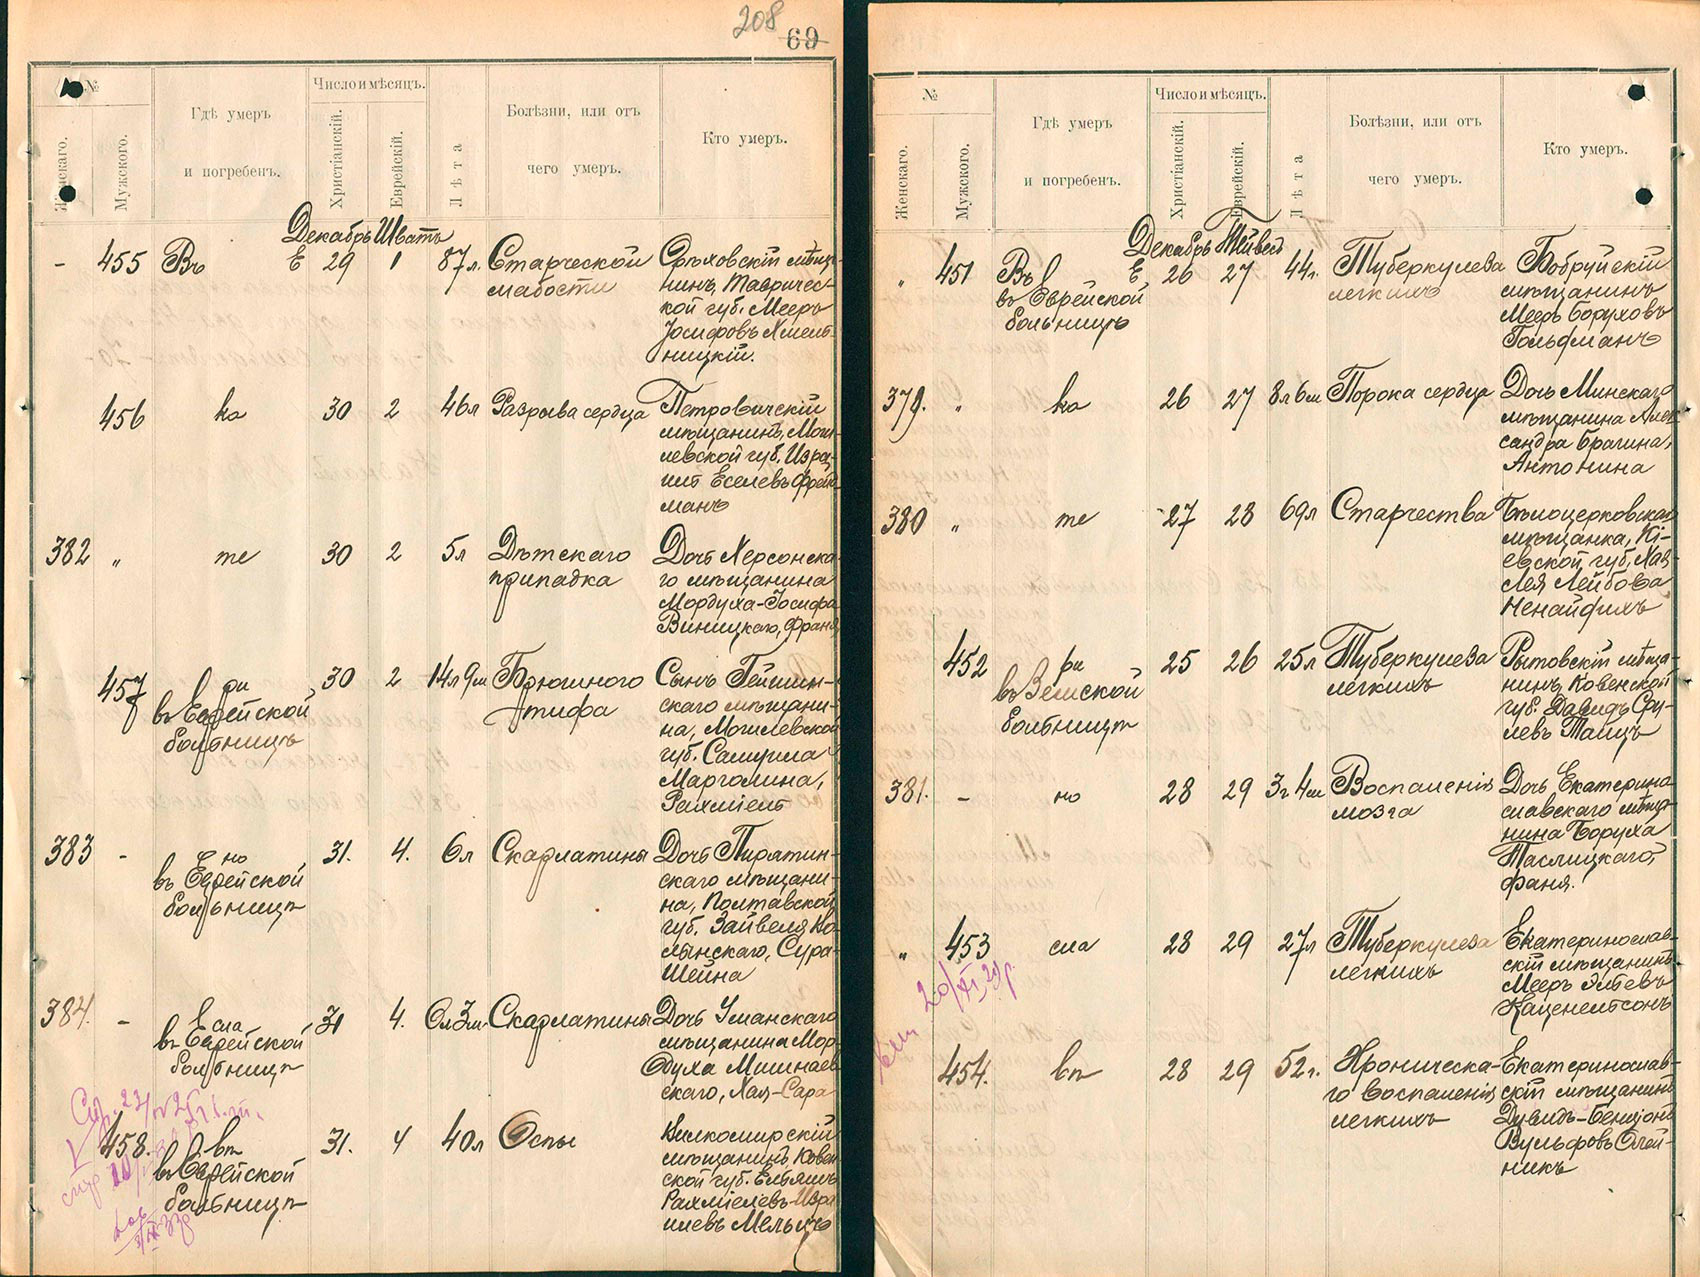 208
69
№
Женскаго.
Мужского.
Гдѣ умеръ
и погребенъ.
Число и мѣсяцъ.
Христіанскій.
Еврейскій.
Лѣта
Болѣзни, или отъ
чего умеръ.
Кто умеръ.
Декабрь Шватъ
- 455 Въ Е 29 1 87л. Старческой
слабости
Орѣховскій мѣща-
нинъ, Тавричес-
кой губ. Мееръ
Іосифовъ Хмель-
ницкій.
456 ка 30 2 46л Разрыва сердца
Петровичскій
мѣщанинъ, Моги-
левской губ. Изра-
иль Еселевъ Фрей-
манъ
382 „ те 30 2 5л Дѣтскаго
припадка
Дочь Херсонска-
го мѣщанина
Мордуха-Іосифа
Виницкаго, Франя
457 ри
въ Еврейской
больницѣ
30 2 14л 9м Брюшного
тифа
Сынъ
скаго мѣщани-
на, Могилевской
губ. Самуила
Марголина,
Рахміель
383 - но
въ Еврейской
больницѣ
31. 4. 6л Скарлатины
Дочь Пирятин-
скаго мѣщани-
на, Полтавской
губ. Зайвеля
Сура-
Шейна
384. - сла
въ Еврейской
больницѣ
31 4. 0л 3м. Скарлатины
Дочь Уманскаго
мѣщанина Мор-
духа
скаго, Хая-Сара
458. вѣ
въ Еврейской
больницѣ
31. 4 40л Оспы
Вилкомирскій
мѣщанинъ Ковен
ской губ. Ельяшъ
Рахміелевъ-Изра
илевъ Мельцъ
№
Женскаго.
Мужского.
Гдѣ умеръ
и погребенъ.
Число и мѣсяцъ.
Христіанскій.
Еврейскій.
Лѣта
Болѣзни, или отъ
чего умеръ.
Кто умеръ.
Декабрь Тейвесъ
„ 451 Въ Е
въ Еврейской
больницѣ
26 27 44г. Туберкулеза
легкихъ
Бобруйскій
мѣщанинъ
Мееръ Боруховъ
Гольфманъ
379. „ ка 26 27 8л 6м Порока сердца
Дочь Минскаго
мѣщанина Алек
сандра Брагина,
Антонина
380 „ те 27 28 69л Старчества
Бѣлоцерковская
мѣщанка, Кі-
евской губ, Хая-
Лея Лейбова
Ненайдихъ
452 ри
въ Земской
больницѣ
25 26 25л Туберкулеза
легкихъ
Рытовскій мѣща-
нинъ, Ковенской
губ. Давидъ
левъ Тайцъ
381. - но 28 29 3г 4м Воспаленія
мозга
Дочь Екатерино
славскаго мѣща-
нина Боруха
Таслицкаго,
Фаня.
„ 453 сла 28 29 27л Туберкулеза
легкихъ
Екатеринослав-
скій мѣщанинъ
Мееръ Эльевъ
Каценельсонъ
454. вѣ 28 29 52г. Хроническа-
го воспаленія
легкихъ
Екатеринослав-
скій мѣщанинъ
Дувидъ-Бенціонъ
Вульфовъ Олей-
никъ